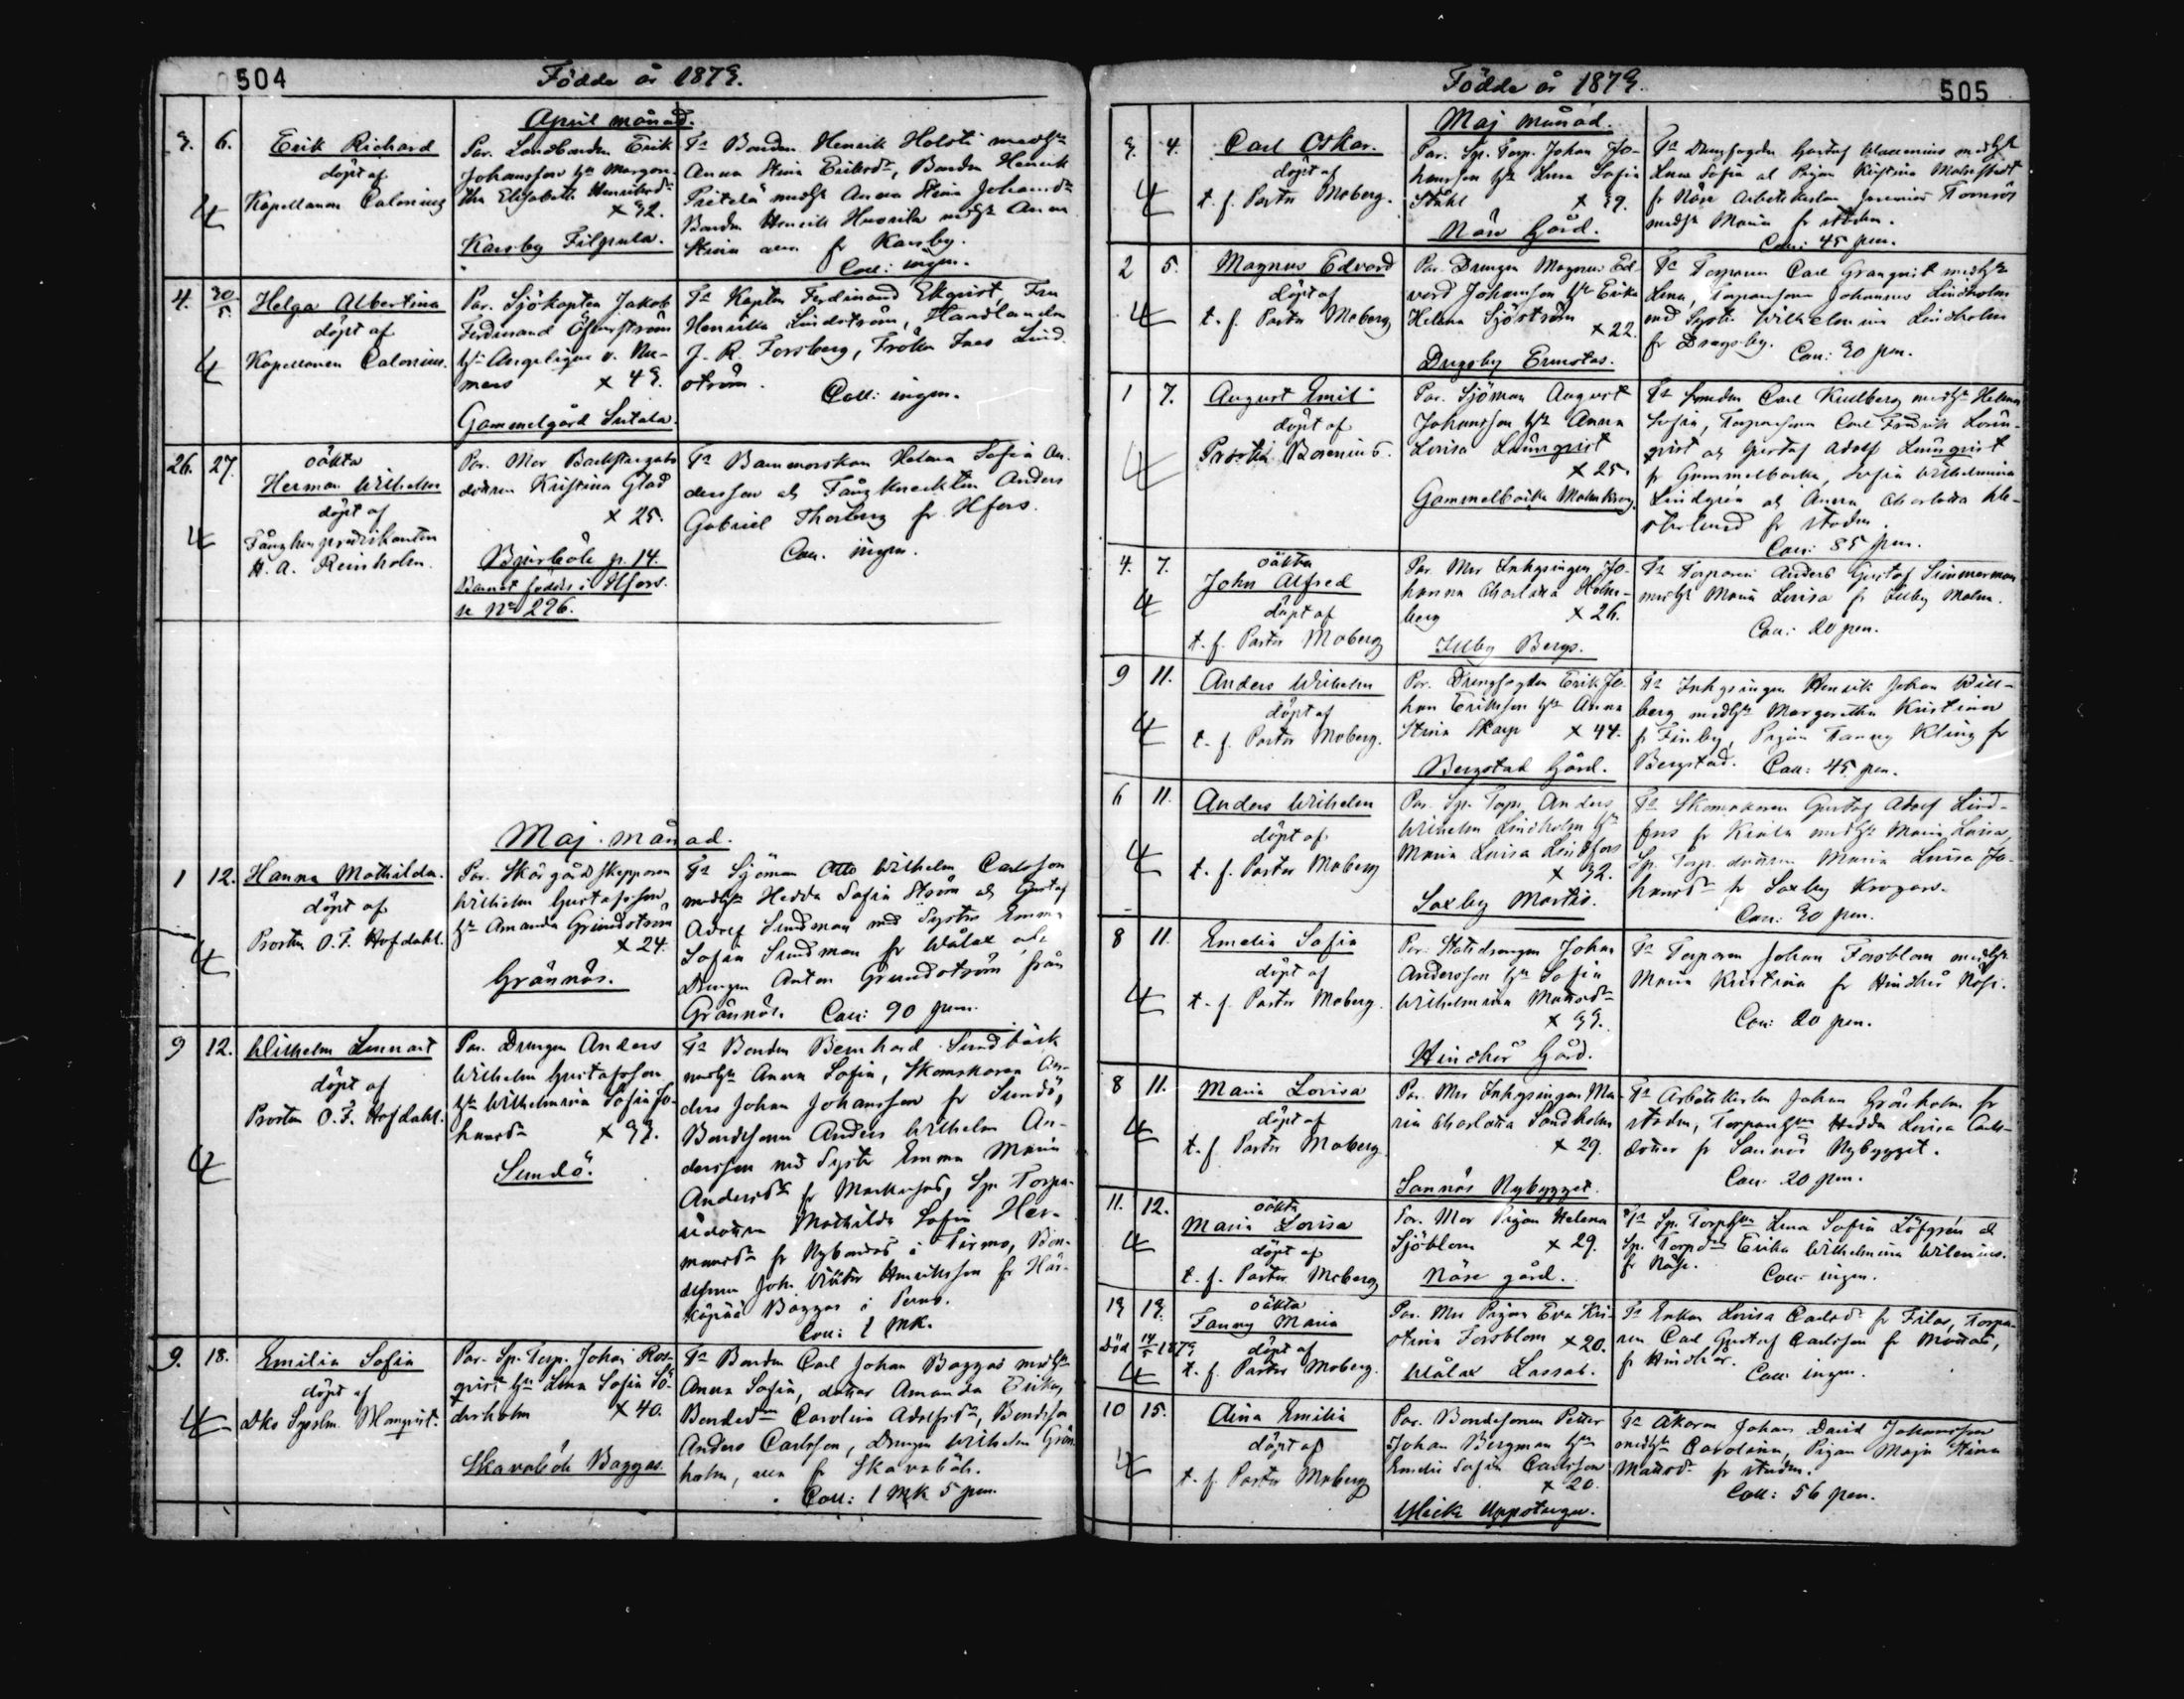 504
Födde år 1879.
April månad.
3. 6.
Erik Richard
döpt af
Kapellanen Calonius
Par. Landbonden Erik
Johansson h. Margare-
tha Elisabeth Henriksdr
x 32.
Karsby Filpula.
Fa. Bonden Henrik Holsti med h.
Anna Stina Eriksdr, Bonden Henrik
Anna Stina Johansdr
Bonden Henrik med h. Anna
Stina alla fr Karsby.
Coll: ingen.
4. 30/5.
Helga Albertina
döpt af
Kapellanen Calonius.
Par. Sjökapten Jakob
Ferdinand Öfverström
h. Angelique v. Nu-
mers x 43.
Gammelgård Sutala.
Fa. Kapten Ferdinand Ekqvist, Fru
Henrika Lindström, Handlanden
J. R. Forsberg, Fröken Ines Lind-
ström.
Coll: ingen.
26. 27.
oäkta
Herman Wilhelm
döpt af
Fånghuspredikanten
H. A. Reinholm.
Par. Mor Backstugubo
dottren Kristina Glad
x 25.
Bjurböle p. 14.
Barnet föddes i Hfors.
se No 226.
Fa. Barnmorskan Helena Sofia An-
dersson och Fångknekten Anders
Gabriel Thorberg fr Hfors.
Coll. ingen.
Maj månad.
1 12.
Hanna Mathilda.
döpt af
Prosten O. F. Hofdahl.
Par. Skärgårdskepparen
Wilhelm Gustafsson
h. Amanda Grundström
x 24.
Grännäs.
Fa. Sjöman Otto Wilhelm Carlsson
med h. Hedda Sofia Ström och Gustaf
Adolf Sundman med Syster Emma
Sofia Sundman fr Wålax och
Drengen Anton Grundström från
Grännäs. Coll: 90 pen.
9 12.
Wilhelm Lennart
döpt af
Prosten O. F. Hofdahl.
Par. Drengen Anders
Wilhelm Gustafsson
h. Wilhelmina Sofia Jo-
hansdr x 33.
Sundö.
Fa. Bonden Bernhard Sundbäck
med h. Anna Sofia, Skomakaren An-
ders Johan Johansson fr Sundö,
Bondesonen Anders Wilhelm An-
dersson med Syster Emma Maria
Andersdr fr Markusas, Sp. Torpa-
redottren Mathilda Sofia Her-
mansdr fr Nybondas i Tirmo, Bon-
desonen Joh. Viktor Henriksson fr Här-
köpää Baggas i Perno.
Coll: 1 Mk.
9. 18.
Emilia Sofia
döpt af
Dks Sysslm. Blomqvist.
Par. Sp. Torp. Johan Ros-
qvist h. Lena Sofia Sö-
derholm x 40.
Skavaböle Baggas.
Fa. Bonden Carl Johan Baggas med h.
Anna Sofia, dotter Amanda Erika,
Bonded. Carolina Adolfsdr, Bondeson
Anders Carlsson, Drengen Wilhelm Grön-
holm, alla fr Skavaböle.
Coll: 1 Mk 5 pen.
Födde år 1879.
505
Maj månad.
3. 4.
Carl Oskar.
döpt af
t. f. Pastor Moberg.
Par. Sp. Torp. Johan Jo-
hansson h. Lena Sofia
Ståhl x 39.
Näse Gård.
Fa. Drengfogden Gustaf med h.
Lena Sofia och Pigan Kristina Malmstedt
fr Näse Arbetskarlen Jeremias Tornros
med h. Maria fr staden.
Coll: 45 pen.
2 5.
Magnus Edvard
döpt af
t. f. Pastor Moberg
Par. Drengen Magnus Ed-
vard Johansson h. Erika
Helena Sjöström
x 22.
Drägsby Ernstas.
Fa. Torparen Carl Granqvist med h.
Lena, Torparsonen Johannes Lindholm
med Syster Wilhelmina Lindholm
fr Drägsby. Coll: 30 pen.
1 7.
August Emil
döpt af
Prosten Borenius.
Par. Sjöman August
Johansson h. Anna
Lovisa Lönnqvist
x 25.
Gammelbacka Malmkrog.
Fa. Smeden Carl Kullberg med h. Helena
Sofia, Torparsonen Carl Fredrik Lönn-
qvist och Gustaf Adolf Lönnqvist
fr Gammelbacka, Sofia Wilhelmina
Lindgren och Anna Charlotta
fr staden.
Coll: 85 pen.
4. 7.
oäkta
John Alfred
döpt af
t. f. Pastor Moberg
Par. Mor Inhysingen Jo-
hanna Charlotta Holm-
berg x 26.
Illby Bergs.
Fa. Torparen Anders Gustaf Simmerman
med h. Maria Lovisa fr Illby Malm.
Coll: 20 pen.
9 11.
Anders Wilhelm
döpt af
t. f. Pastor Moberg.
Par. Drengfogden Erik Jo-
han Eriksson h. Anna
Stina Skarp x 44.
Bergstad Gård.
Fa. Inhysingen Henrik Johan Will-
berg med h. Margaretha Kristina
fr Finby, Pigan Fanny Kling fr
Bergstad. Coll: 45 pen.
6 11.
Anders Wilhelm
döpt af
t. f. Pastor Moberg
Par. Sp. Torp. Anders
Wilhelm Lindholm h.
Maria Lovisa Lindfors
x 32.
Saxby Martis.
Fa. Skomakaren Gustaf Adolf Lind-
fors fr Kiala med h. Maria Lovisa,
Sp. Torp. dottren Maria Lovisa Jo-
hansdr fr Saxby Krogars.
Coll: 30 pen.
8 11.
Emelia Sofia
döpt af
t. f. Pastor Moberg.
Par. Statdrengen Johan
Andersson h. Sofia
Wilhelmina Matsdr
x 33.
Hindhår Gård.
Fa. Torparen Johan Forsblom med h.
Maria Kristina fr Hindhår Näse.
Coll: 20 pen.
8 11.
Maria Lovisa
döpt af
t. f. Pastor Moberg
Par. Mor Inhysingen Ma-
ria Charlotta Sandholm
x 29.
Sannäs Nybygget.
Fa. Arbetskarlen Johan Grönholm fr
staden, Torpar Hedda Lovisa Carls-
dotter fr Sannäs Nybygget.
Coll: 20 pen.
11. 12.
oäkta
Maria Lovisa
döpt af
t. f. Pastor Moberg
Par. Mor Pigan Helena
Sjöblom x 29.
Näse gård.
Fa. Sp. Lena Sofia Löfgrén och
Sp. Torpd. Erika Wilhelmina Wilenius.
fr Näse. Coll: ingen.
13 13.
Död 14/5 1879
oäkta
Fanny Maria
döpt af
t. f. Pastor Moberg.
Par. Mor Pigan Eva Kri-
stina Forsblom x 20.
Wålax Lassas.
Fa. Enkan Lovisa Carlsdr fr Filas, Torpa-
ren Carl Gustaf Carlsson fr
fr Hindhår. Coll: ingen.
10 15.
Aina Emilia
döpt af
t. f. Pastor Moberg
Par. Bondesonen Petter
Johan Bergman h.
Emelie Sofia Carlsson
x 20.
Ylicke Uppstugu.
Fa. Åkaren Johan David Johansson
med h. Carolina, Pigan Maja Stina
Matsdr fr staden.
Coll: 56 pen.